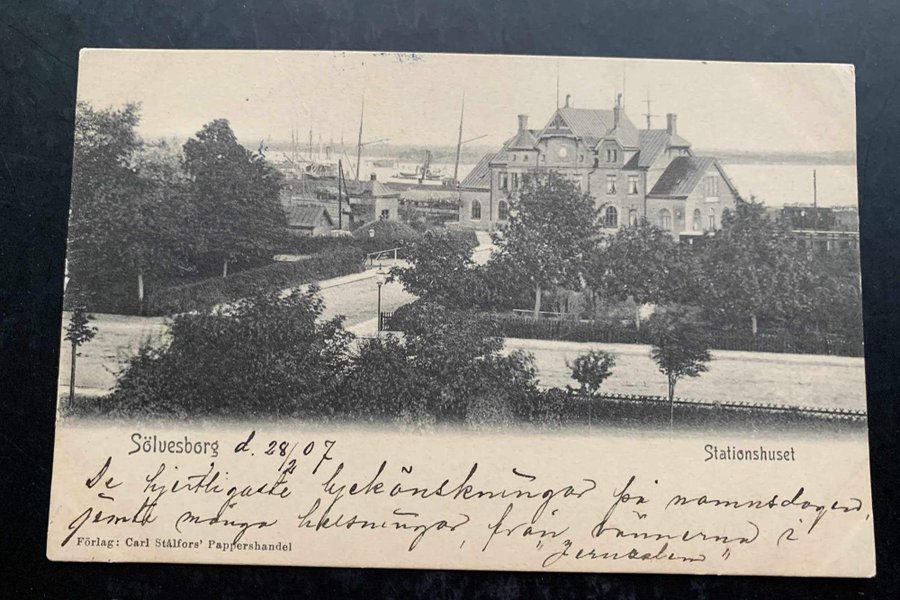 Sölvesborg d. 28/2 07
Stationshuset
De hjertligaste lyckönskningar på namnsdagen,
jemte många helsningar, från vännerna i
"Jerusalem"
Förlag: Carl Stålfors' Pappershandel